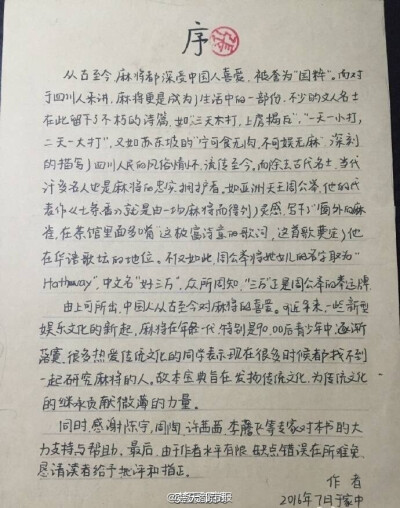 序
从古至今,麻将都深受中国人喜爱,被誉为"国粹"。而对
于四川人来讲,麻将更是成为了生活中的一部份,不少的文人名士
在此留下了不朽的诗篇,如"三天不打,上房揭瓦","一天一小打,
二天一大打",又如苏东坡的"宁可食无肉,不可娱无麻",深刻
的描写了四川人民的风俗情怀,流传至今。而除去古代名士,当代
许多名人也是麻将的忠实拥护者,如亚洲天王周公举,他的代
表作《七条香》就是由一场麻将而得到了灵感,写下了"窗外的麻
雀,在茶馆里面多嘴"这极富诗意的歌词,这首歌奠定了他
在华语歌坛的地位。不仅如此,周公举将她女儿的名字取为"
Hathaway",中文名"好三万",众所周知,"三万"正是周公举的幸运牌
由上可所出,中国人从古至今对麻将的喜爱。可近年来,一些新型
娱乐文化的新起,麻将在年轻一代,特别是90,00后青少年中逐渐
落寞,很多热爱传统文化的同学表示现在很多时候都找不到
一起研究麻将的人。故本宝典旨在发扬传统文化,为传统文化
的继承贡献微薄的力量。
同时,感谢陈宇,周陶,许茜茜,李麓飞等专家对本书的大
力支持与帮助,最后,由于作者水平有限,缺点错误在所难免,
恳请读者给于批评和指正。
作者
2016年7月于家中